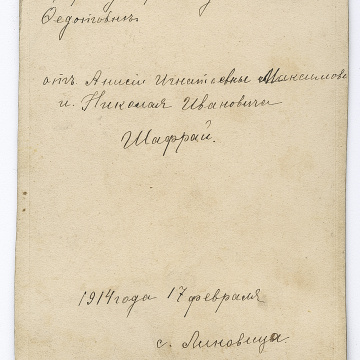 Федотовнѣ
отъ Анисіи Игнатовны Максимово
и. Николая Ивановича
Шафрай.
1914 года 17 февраля
с. Линовица